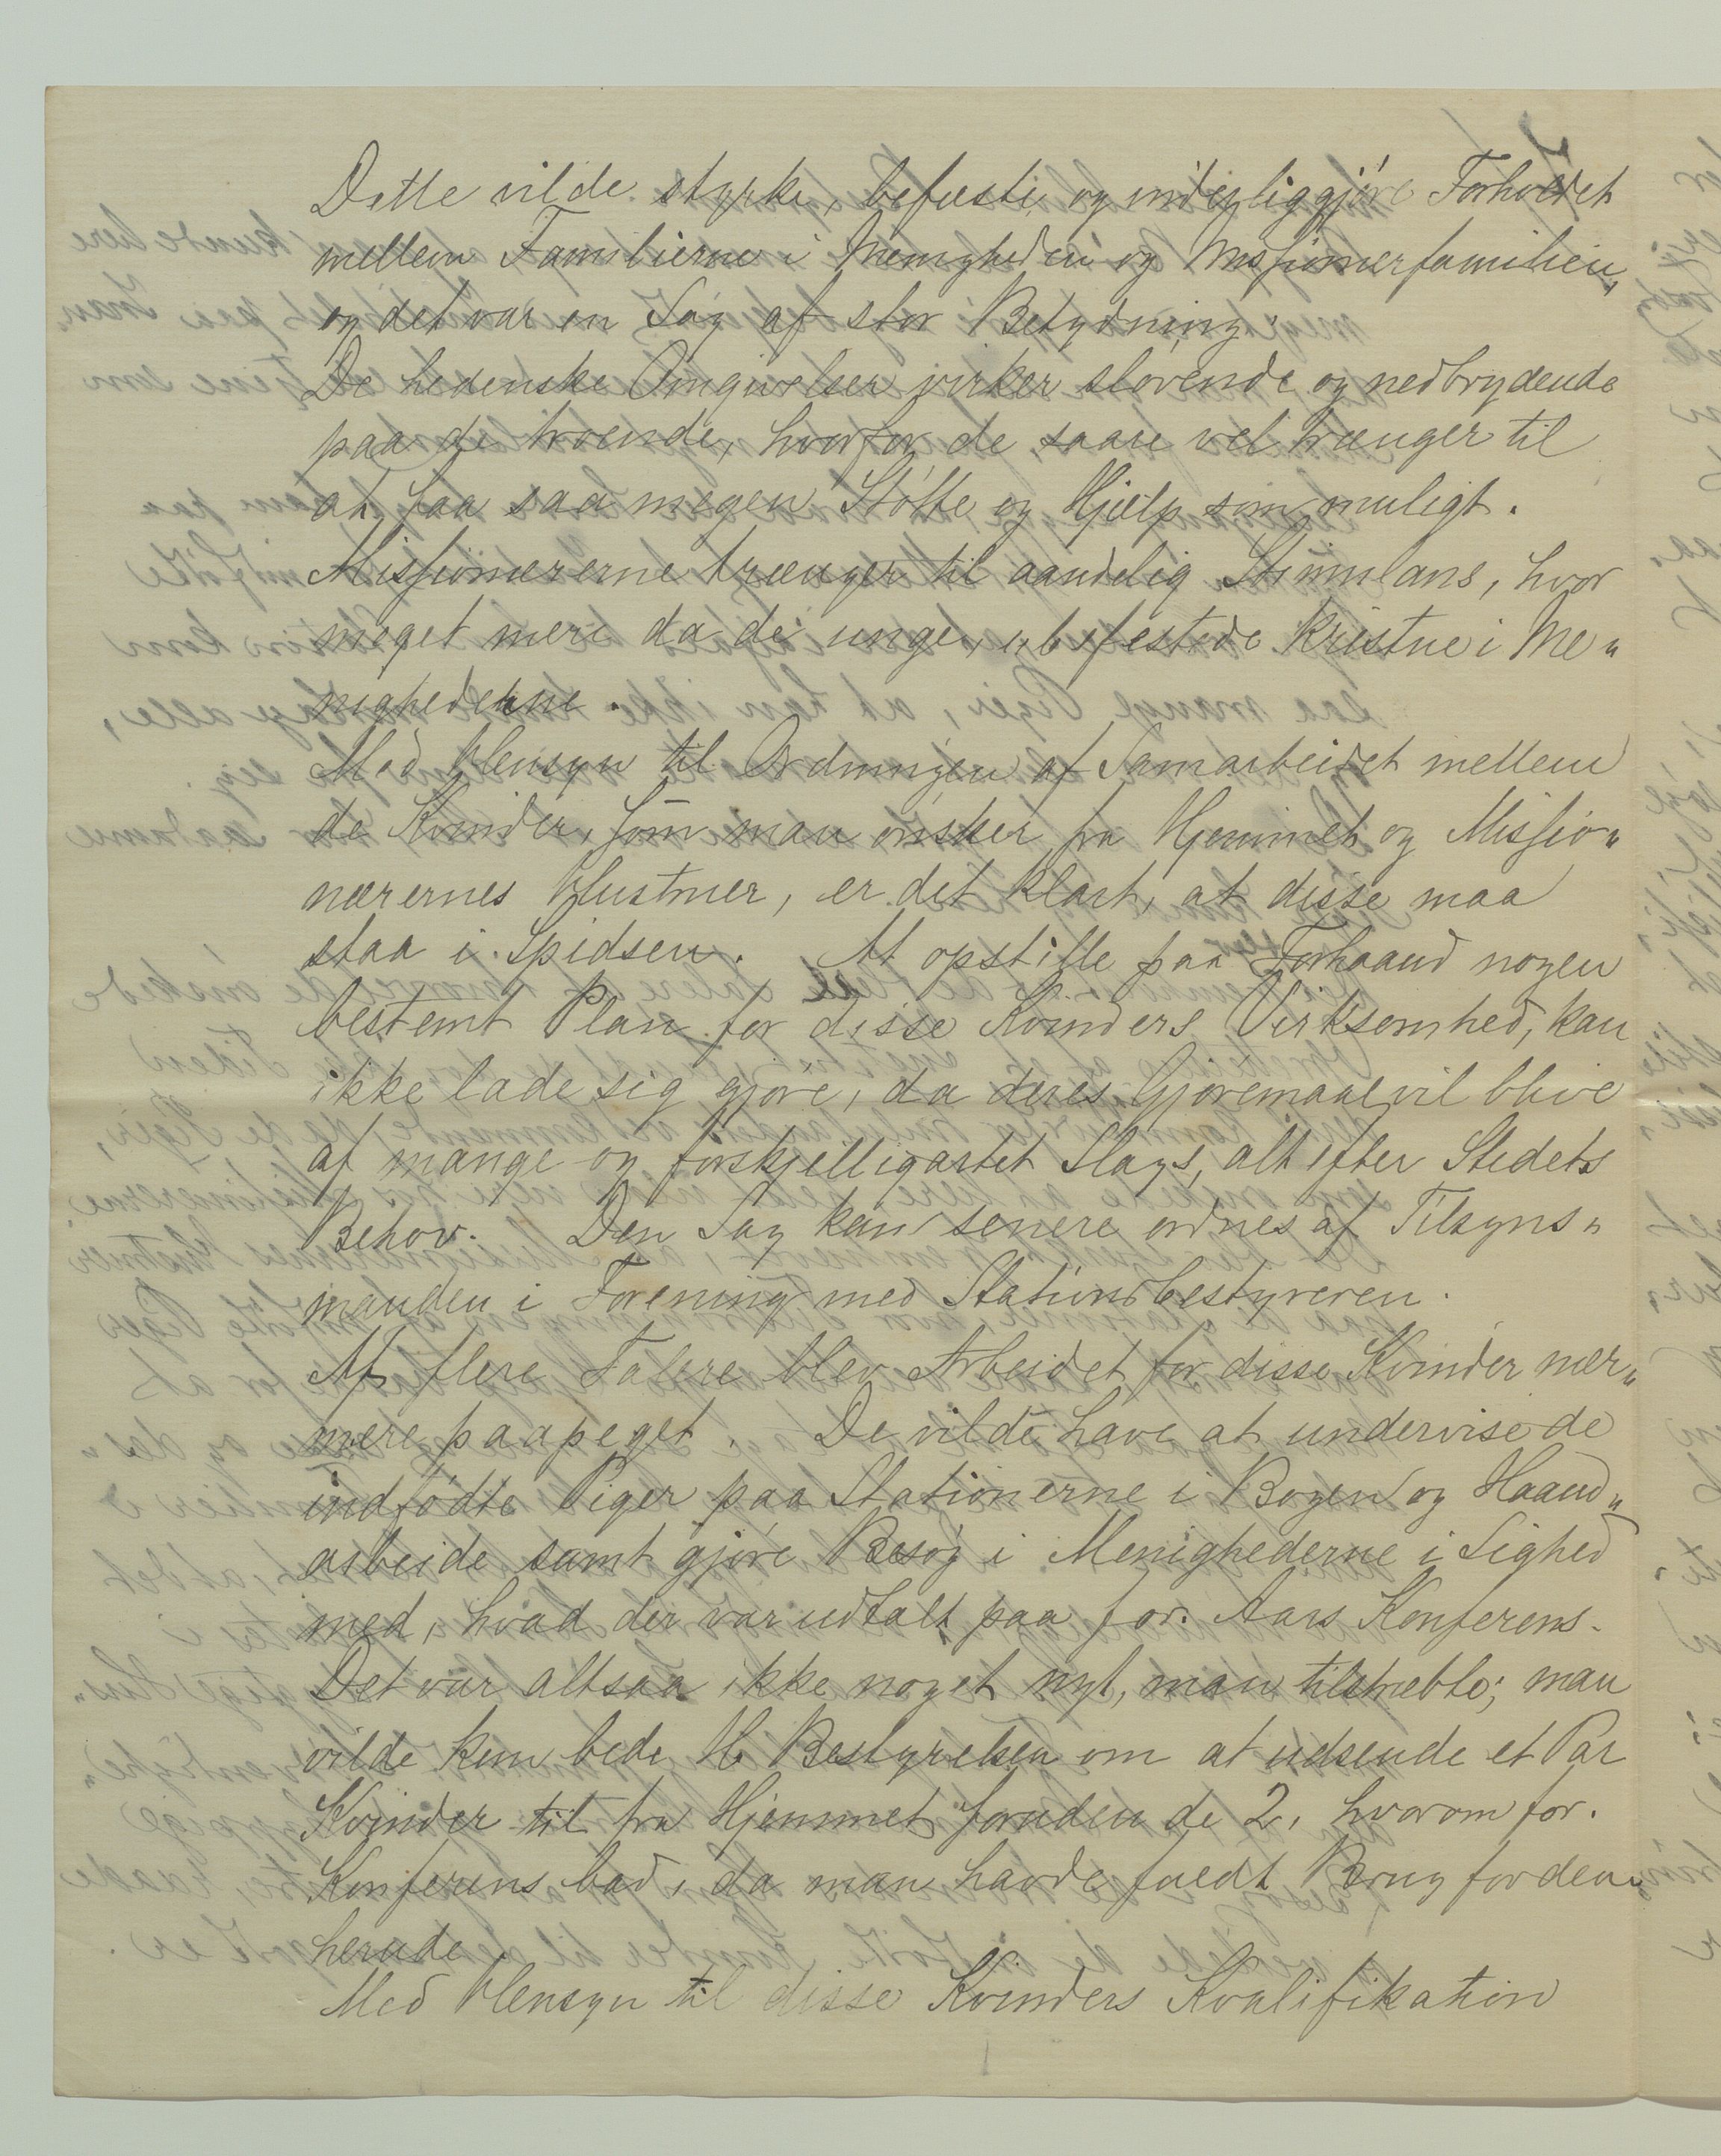 Dette vilde styrke, befæste og inderliggjøre Forholdet
mellem Familierne i Menigheden og Missionærfamilien,
og det var en Sag af stor Betydning.
De hedenske Omgivelser virker sløvende og nedbrydende
paa de troende, hvorfor de saare vel trænger til
at faa saa megen Støtte og Hjælp som muligt.
Missionærerne trænger til aandelig Stimulans, hvor
meget mere da de unge, ubefestede Kristne i Me„
nighederne.
Med Hensyn til Ordningen af Samarbeidet mellem
de Kvinder, som man ønsker fra Hjemmet og Missio„
nærernes Hustruer, er det klart, at disse maa
staa i Spidsen. At opstille paa Forhaand nogen
bestemt Plan for disse Kvinders Virksomhed, kan
ikke lade sig gjøre, da deres Gjøremaal vil blive
af mange og forskjelligartet Slags, alt efter Stedets
Behov. Den Sag kan senere ordnes af Tilsyns„
manden i Forening med Stationsbestyreren.
Af flere Talere blev Arbeidet for disse Kvinder nær„
mere paapeget. De vilde have at undervise de
indfødte Piger paa Stationerne i Bogen og Haand„
arbeide samt gjøre Besøg i Menighederne i Lighed
med, hvad der var udtalt paa for. Aars Konferens.
Det var altsaa ikke noget nyt, man tilstræbte; man
vilde kun bede H. Bestyrelsen om at udsende et Par
Kvinder til fra Hjemmet foruden de 2, hvorom for.
Konferens bad, da man havde fuldt Brug for dem
herude.
Med Hensyn til disse Kvinders Kvalifikation